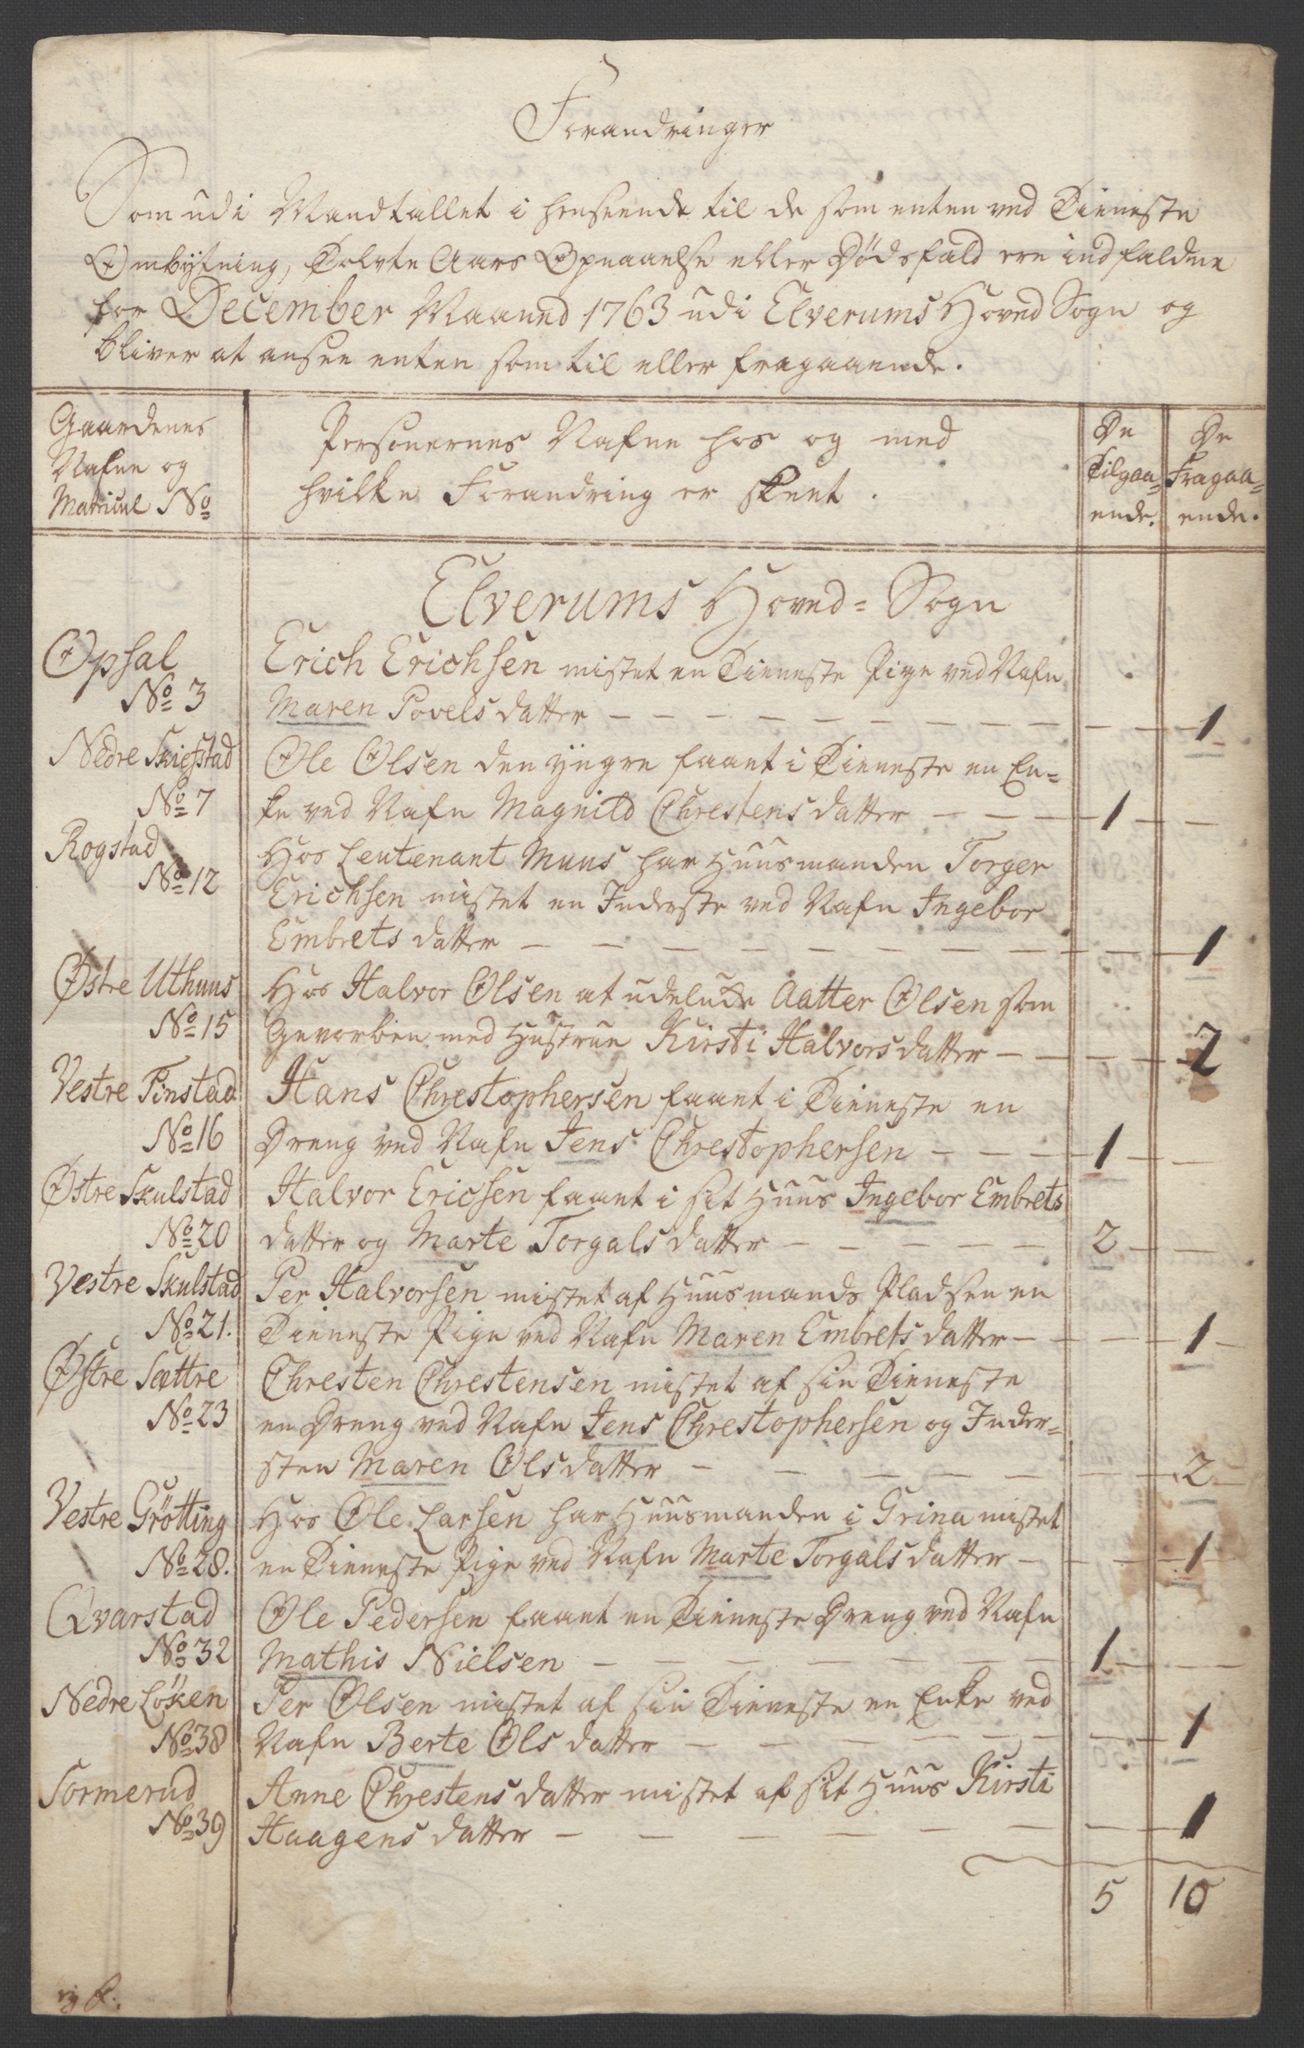 Forandringer
Som udi Mandtallet i henseende til de som enten ved Tieneste
Ombytning, Tolvte Aars Opnaaelse eller Dødsfald ere indfaldne
for December Maaned 1763 udi Elverums Hoved Sogn og
bliver at ansee enten som til eller fragaaende.
Gaardenes
Nafne og
Matricul No
Personernes Nafne hos og med
hvilke Forandring er skeet.
De
Tilgaa-
ende.
De
Fragaa-
ende.
Elverums Hoved-Sogn
Opsal
No 3
Erich Erichsen mistet en Tieneste Pige ved Nafn
Maren Povels datter — 1
Nedre Skiefstad
No 7
Ole Olsen den yngre faaet i Tieneste en En-
ke ved Nafn Magnild Chrestens datter — 1
Rogstad
No 12
Hos Leutenant Muus har Huusmanden Torger
Erichsen mistet en Inderste ved Nafn Ingebor
Embrets datter — 1
Østre Uthuus
No 15
Hos Halvor Olsen at udelukke Aatter Olsen som
Gevorben med Hustrue Kirsti Halvors datter — 2
Vestre Finstad
No 16
Hans Chrestophersen faaet i Tieneste en
Dreng ved Nafn Jens Chrestophersen — 1
Østre Skulstad
No 20
Halvor Ericsen faaet i sit Huus Ingebor Embrets
datter og Marte Torgals datter — 2
Vestre Skulstad
No 21.
Per Halvorsen mistet af Huusmands Pladsen en
Tieneste Pige ved Nafn Maren Embrets datter — 1
Østre Sættre
No 23
Chresten Chrestensen mistet af sin Tieneste
en Dreng ved Nafn Jens Chrestophersen og Inder-
sten Maren Ols datter — 2
Vestre Grötting
No 28.
Hos Ole Larsen har Huusmanden i Grina mistet
en Tieneste Pige ved Nafn Marte Torgals datter — 1
Qvarstad
No 32
Ole Pedersen faaet en Tieneste Dreng ved Nafn
Mathis Nielsen — 1
Nedre Löken
No 38
Per Olsen mistet af sin Tieneste en Enke ved
Nafn Berte Ols datter — 1
Sormerud
No 39
Anne Chrestens datter mistet af sit Huus Kirsti
Haagens datter — 1
5 10